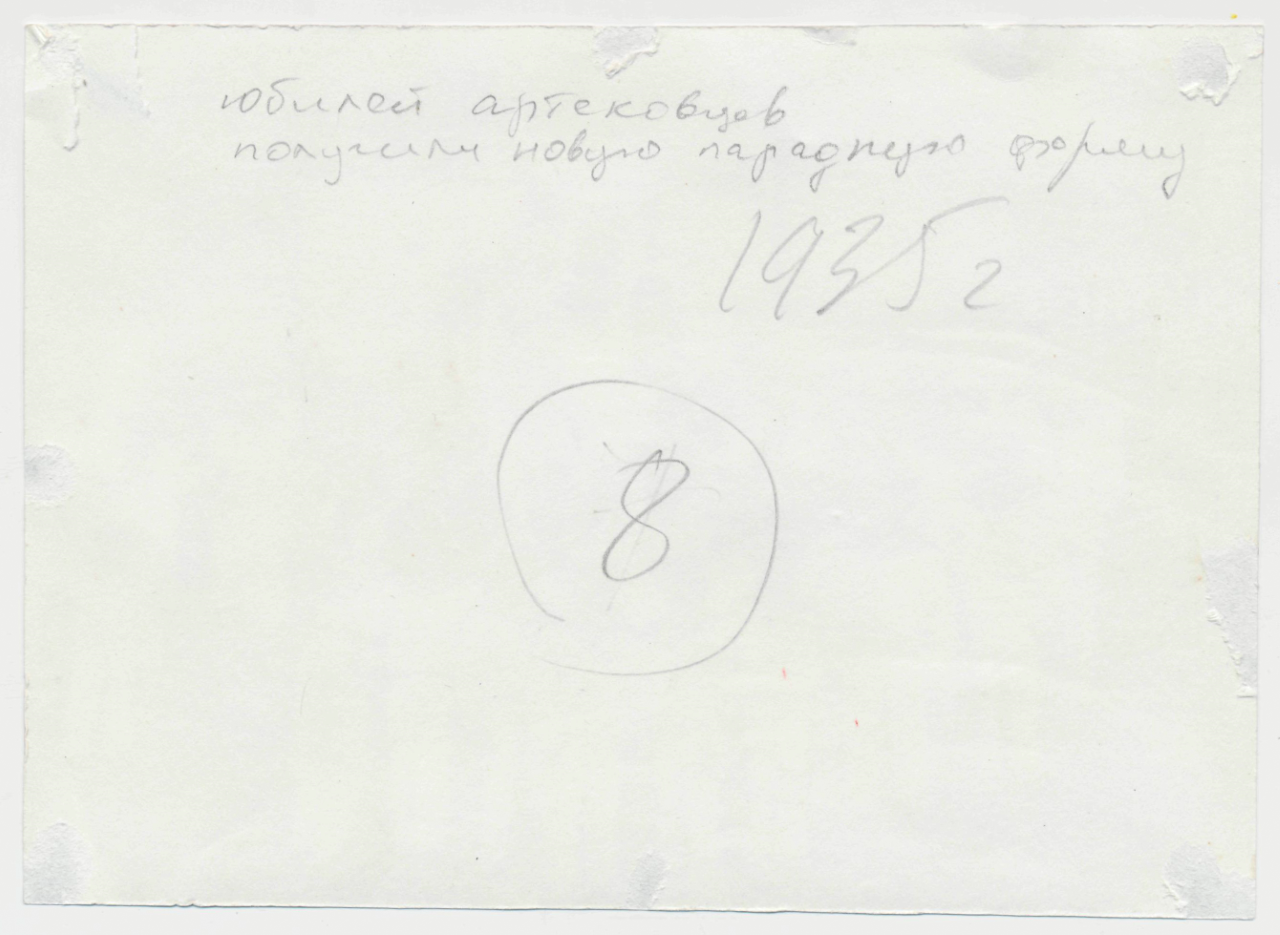 юбилей артековцев
получили новую парадную форму
1935 г
8